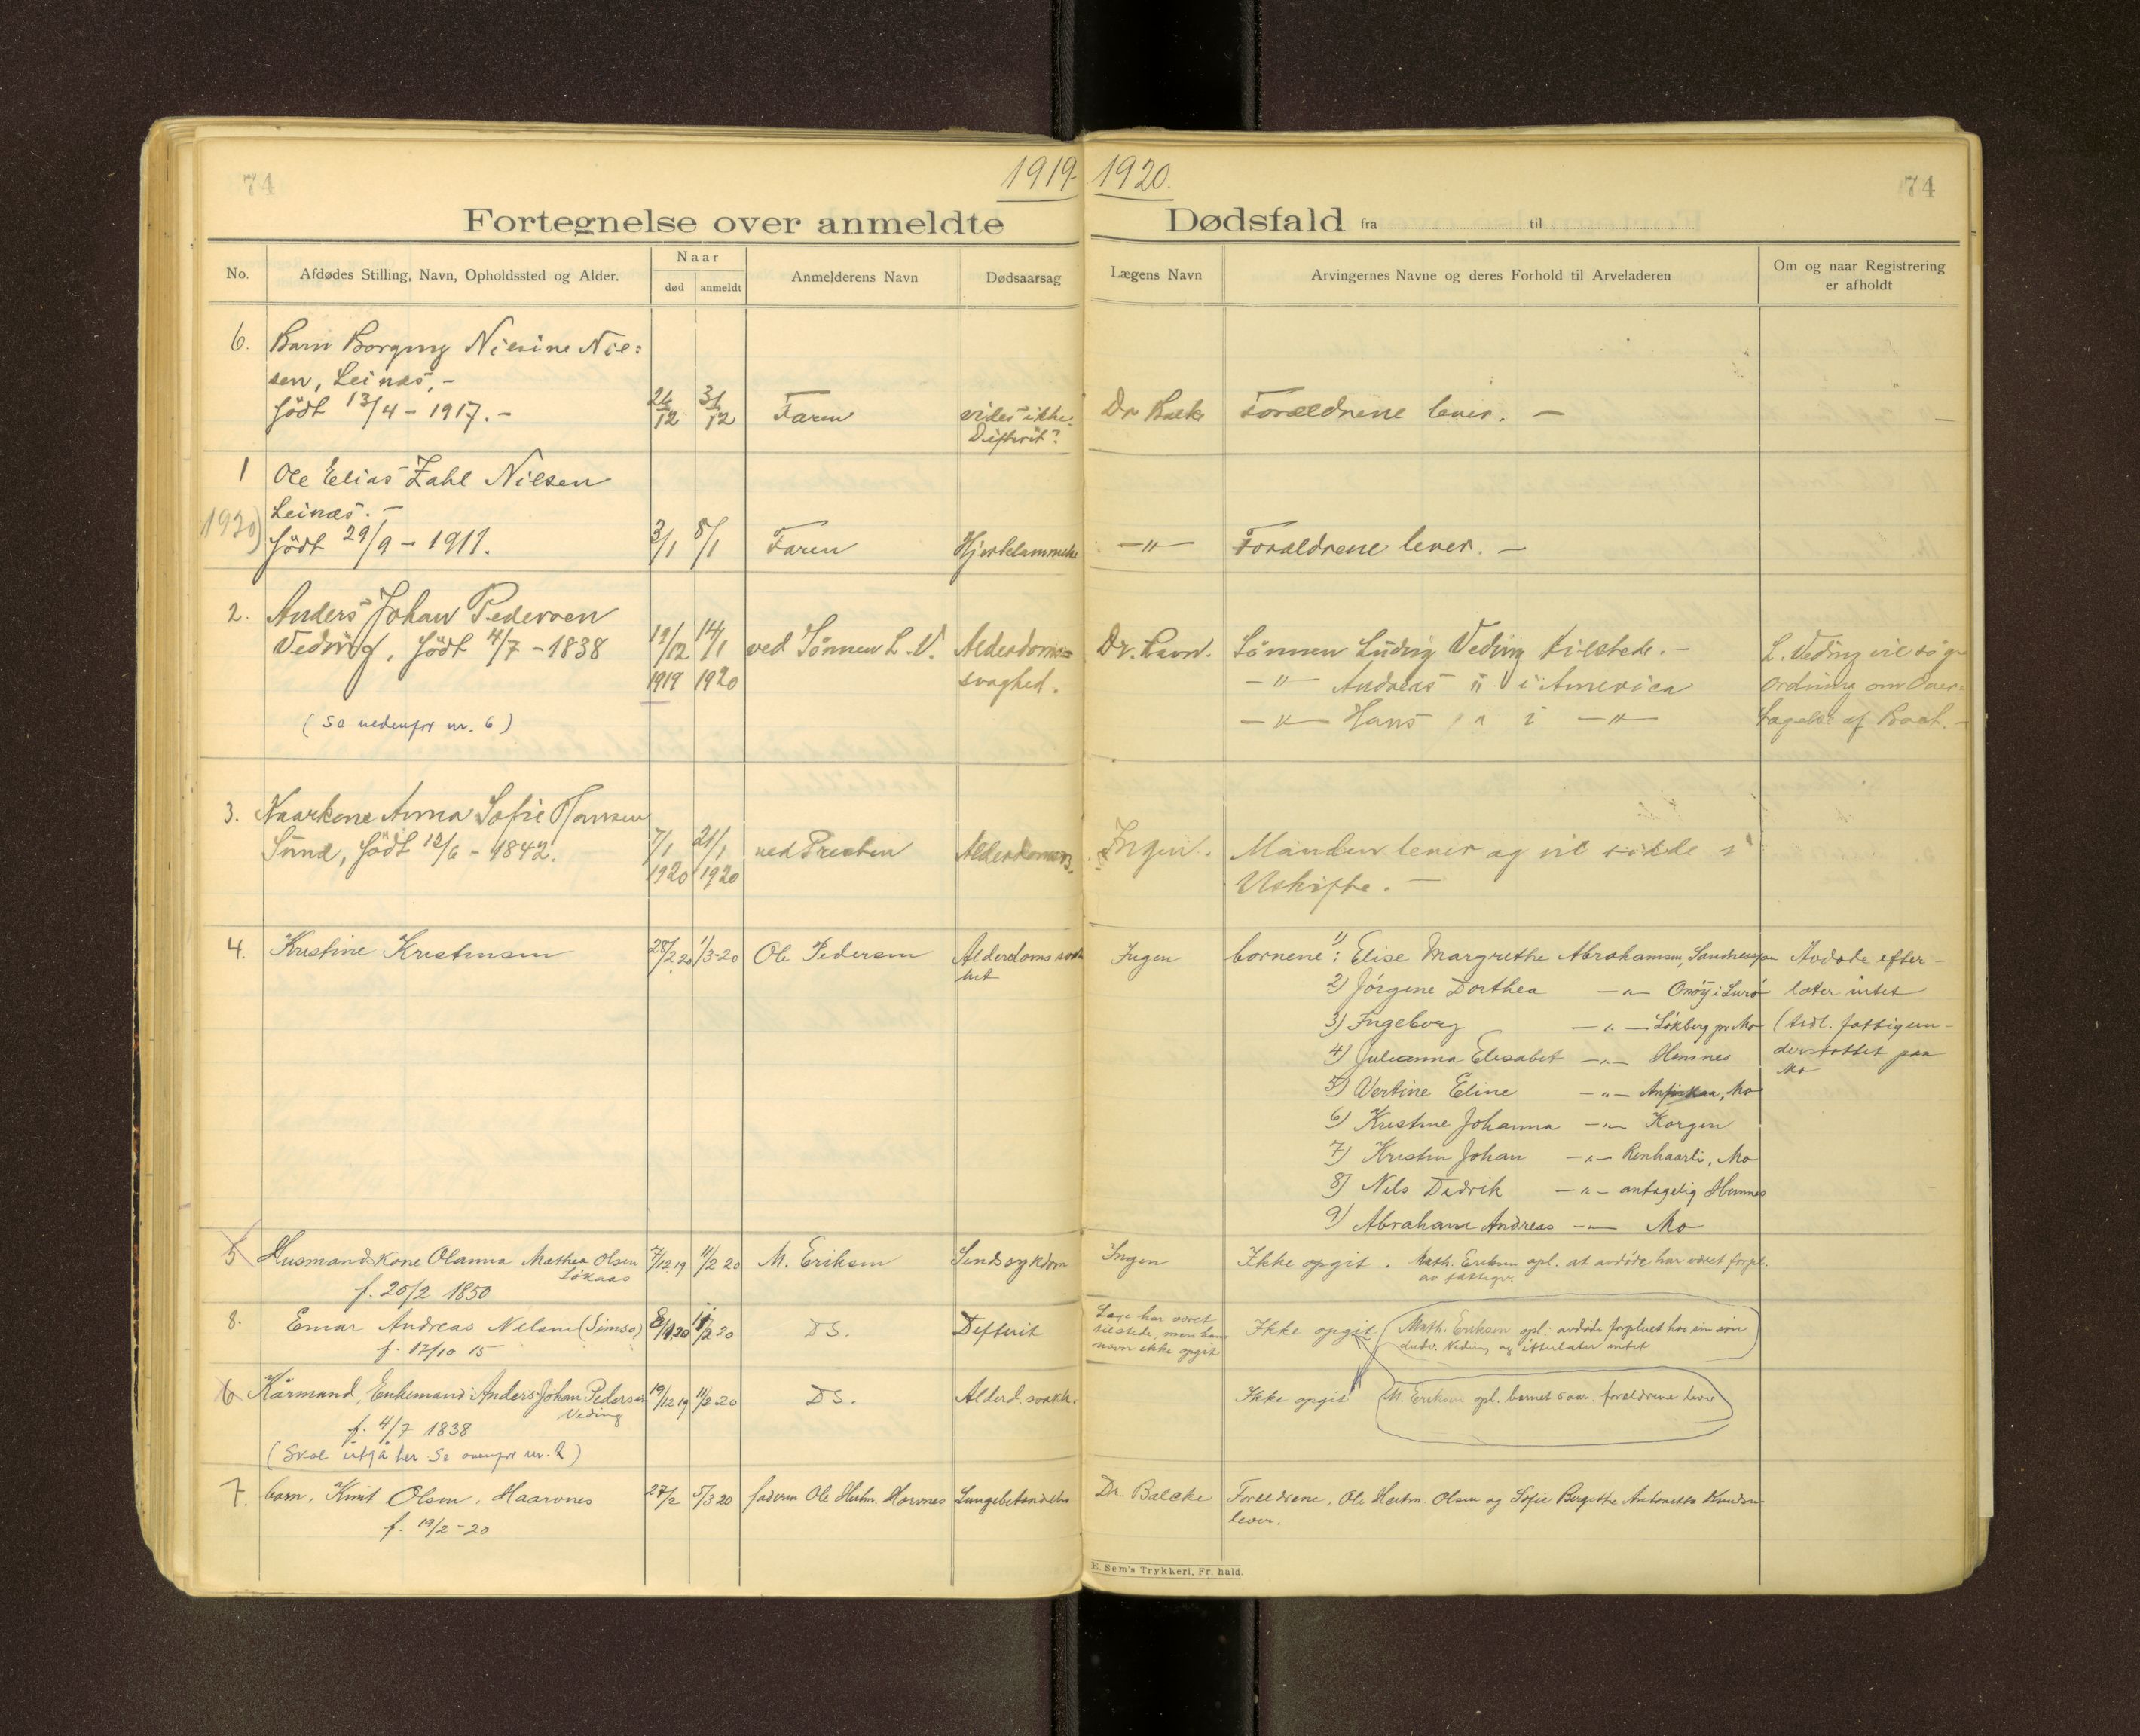 74
1919-1920.
74
Fortegnelse over anmeldte Dødsfald fra til
No.
Afdødes Stilling, Navn, Opholdssted og Alder.
Naar
død
anmeldt
Anmelderens Navn
Dødsaarsag
Lægens Navn
Arvingernes Navne og deres Forhold til Arveladeren
Om og naar Registrering
er afholdt
6. Barn Borgny Nicsine Niel:
sen, Leines, -
født 13/4 - 1917. - 26/12 31/12 Faren vides ikke. Dr Balke Forældrene lever. -
Difterit?
1 Ole Elias Zahl Nilsen
Leines. -
1920) født 29/9 - 1911. 3/1 8/1 Faren Hjertelammelse -"- Forældrene lever. -
2. Anders Johan Pedersen
Veding, født 4/7 - 1838 19/12 14/1 ved Sønnen L. V. Alderdoms= Dr. Sønnen Ludvig Veding tilstede. - L. Veding vil søge
1919 1920 svaghed. -"- Andreas " i America Ordning om Over-
(Se nedenfor nr. 6) -"- Hans " i -"- tagelse af Boet. -
3. Kaarkone Anna Sofie Hansen
Sund, født 12/6 - 1842. 7/1 21/1 ved Presten Alderdoms. Ingen. Manden lever og vil sidde i
1920 1920 Uskifte. -
4. Kristine Kristensen 28/2 20 1/3-20 Ole Pedersen Alderdomssvak Ingen børnene: 1) Elise Margrethe Abrahamsen, Avdøde efter-
het 2) Jørgine Dorthea -"- Onøy i Lurø later intet
3) Ingeborg -"- Løkberg pr Mo (tidl. fattigun-
4) Julianna Elisabet -"- Hemnes derstøttet paa
Mo
5) Vertine Eline -"- Mo
6) Kristine Johanna -"- Korgen
7) Kristen Johan -"- Renhaarli, Mo
8) Nils Didrik -"- antagelig Hemnes
9) Abraham Andreas -"- Mo
5 Husmandskone Olanna Mathea Olsen 7/12 19 11/2 20 M. Eriksen Sindssykdom Ingen Ikke opgit. Math. Eriksen opl. at avdøde har været forpl.
Løkaas av fattigv.
f. 20/2 1850
8. Einar Andreas Nilsen (Simsø) 8/1 20 11/2 20 DS. Difterit Læge har været Ikke opgit (Math. Eriksen opl: avdøde forpleiet hos sin søn
f. 17/10 15 tilstede, men hans Ludv. Veding og efterlater intet
navn ikke opgit
6 Kårmand, Enkemand Anders Johan Pedersen 19/12 19 11/2 20 DS. Alderd. svakh. Ikke opgit (M. Eriksen opl. barnet 5 aar. forældrene lever
Veding
f. 4/7 1838
(Skal utgå her Se ovenfor nr. 2)
7. barn, Knut Olsen, Haarvnes 27/2 5/3 20 faderen Ole Hartm. Horvnes Lungebetændelse Dr. Balcke Forældrene, Ole Hartm. Olsen og Sofie Bergitte Antonette Knudsen
f. 19/2 - 20 lever.
E. Sem's Trykkeri, Fr. hald.